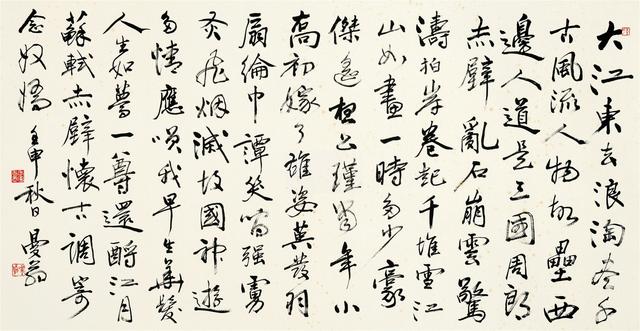 大江東去浪淘盡千
古風流人物故壘西
邊人道是三國周郎
赤壁亂石崩雲驚
濤拍岸卷起千堆雪江
山如畫一時多少豪
傑遙想公瑾當年小
喬初嫁了雄姿英發羽
扇綸巾譚笑間强虜
灰飛烟滅故國神遊
多情應咲我早生華髮
人生如夢一尊還酹江月
蘇軾赤壁懷古調寄
念奴嬌 壬申秋日曼翁